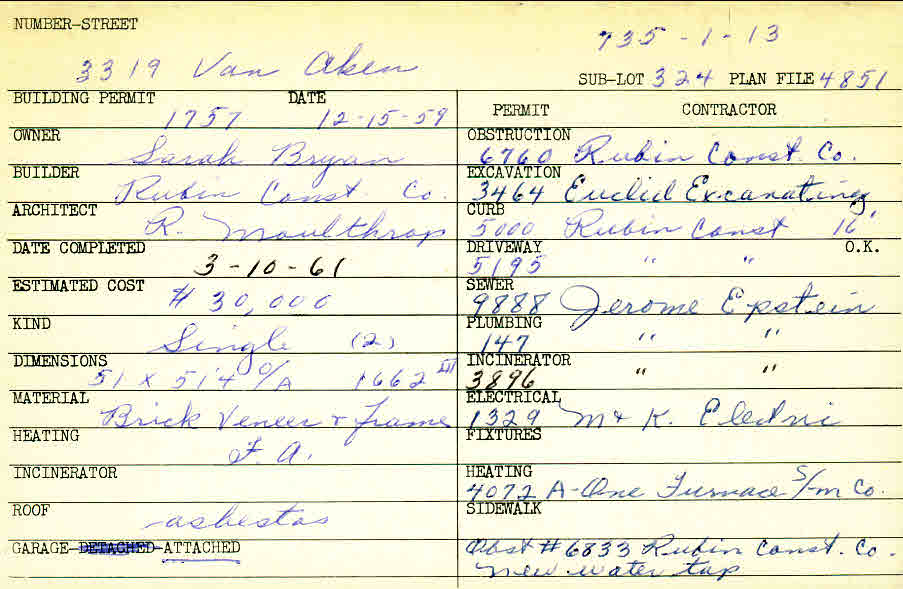 NUMBER-STREET
735-1-13
3319 Van Aken
SUB-LOT 324 PLAN FILE 4851
BUILDING PERMIT DATE
1757 12-15-59
OWNER
Sarah Bryan
BUILDER
Rubin Const. Co.
ARCHITECT
R. Moulthrop
DATE COMPLETED
3-10-61
ESTIMATED COST
$30,000
KIND
Single (2)
DIMENSIONS
51 x 51'4 O/A 1662
MATERIAL
Brick Veneer + frame
HEATING
F. A.
INCINERATOR
ROOF
asbestos
GARAGE-DETACHED-ATTACHED
PERMIT CONTRACTOR
OBSTRUCTION
6760 Rubin Const. Co.
EXCAVATION
3464 Euclid Excavating
CURB
5000 Rubin Const 16'
DRIVEWAY O.K.
5195 " "
SEWER
9888 Jerome Epstein
PLUMBING
147 " "
INCINERATOR
3896 " "
ELECTRICAL
1329 M + K. Electric
FIXTURES
HEATING
4072 A-One Furnace S/m Co.
SIDEWALK
Obst # 6833 Rubin Const. Co.
new water tap